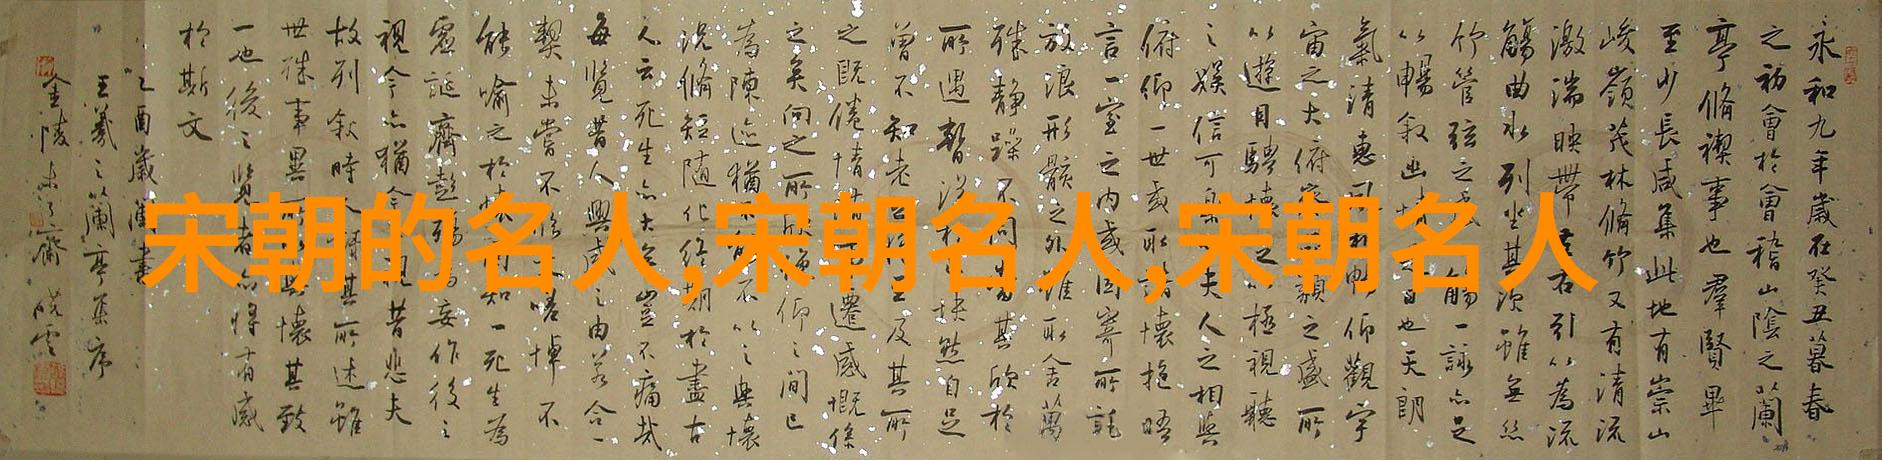 宋朝的名人,宋朝名人,宋朝名人
永和九年歲在癸丑暮春
之初會於會稽山陰之蘭
亭脩禊事也羣賢畢
至少長咸集此地有崇山
峻嶺茂林脩竹又有清流
激湍映帶左右引以為流
觴曲水列坐其次雖無絲
竹管弦之盛觴一詠亦足
以暢敘幽情日也天朗
氣清惠風和暢仰觀宇
宙之大俯察類之盛所
以遊目騁懷以極視聽
之娛信可樂夫人之相與
俯仰一世或取諸懷抱晤
言一室之內或因寄所託
放浪形骸之外雖取舍萬
殊靜躁不同當其欣於
所遇暫得於快然自足
曾不知老之將至及其所
之既倦情隨事遷感慨係
之矣向之所欣俛仰之間已
為陳迹猶不能不以之興懷
況脩短隨化終期於盡古
人云死生亦大矣豈不痛哉
每覽昔人興感之由若合一
契未嘗不臨嗟悼不
能喻之於懷知一死生為
虛誕齊彭殤為妄作後之
視今亦猶今視昔悲夫
故列敘時人錄其所述雖
世殊事異所以興懷其致
一也後之覽者亦將有感
於斯文
乙酉歲書
王羲之蘭亭集序
金陵齋